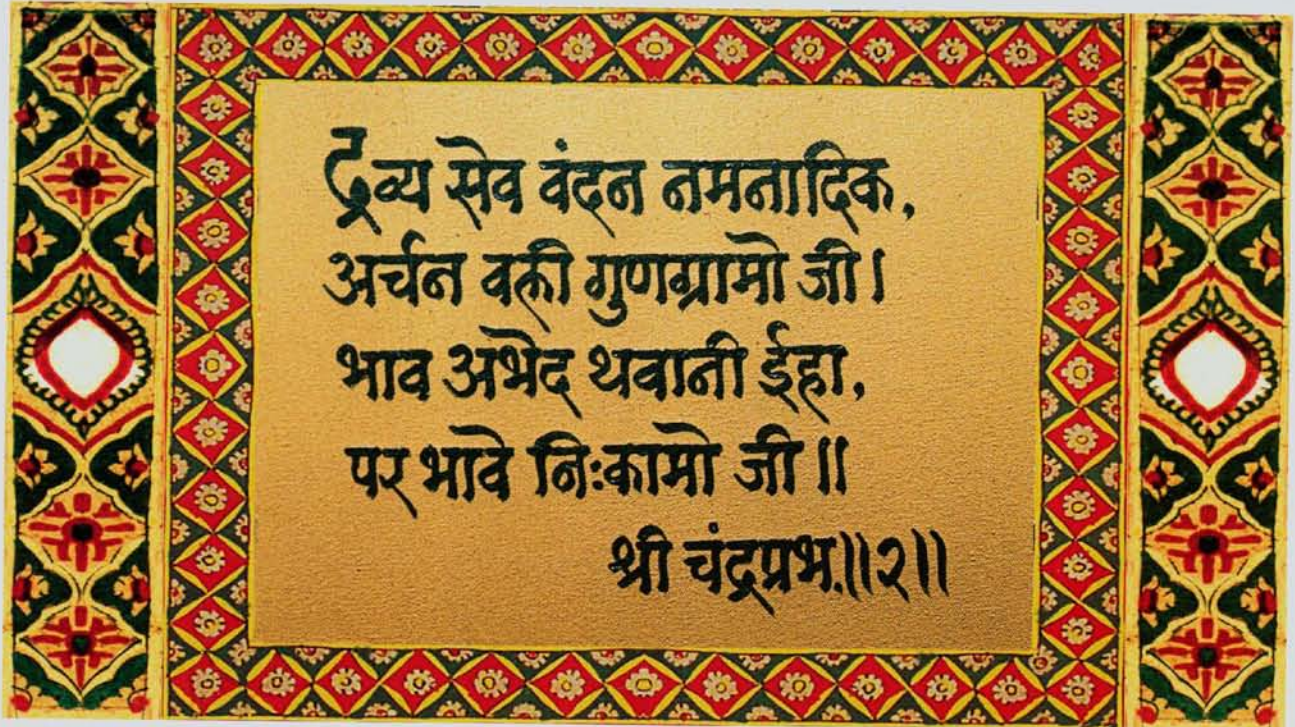 द्रव्य सेव वंदन नमनादिक,
अर्चन वळी गुणग्रामो जी।
भाव अभेद थवानी ईहा,
पर भावे निःकामो जी॥
श्री चंद्रप्रभ.॥२॥